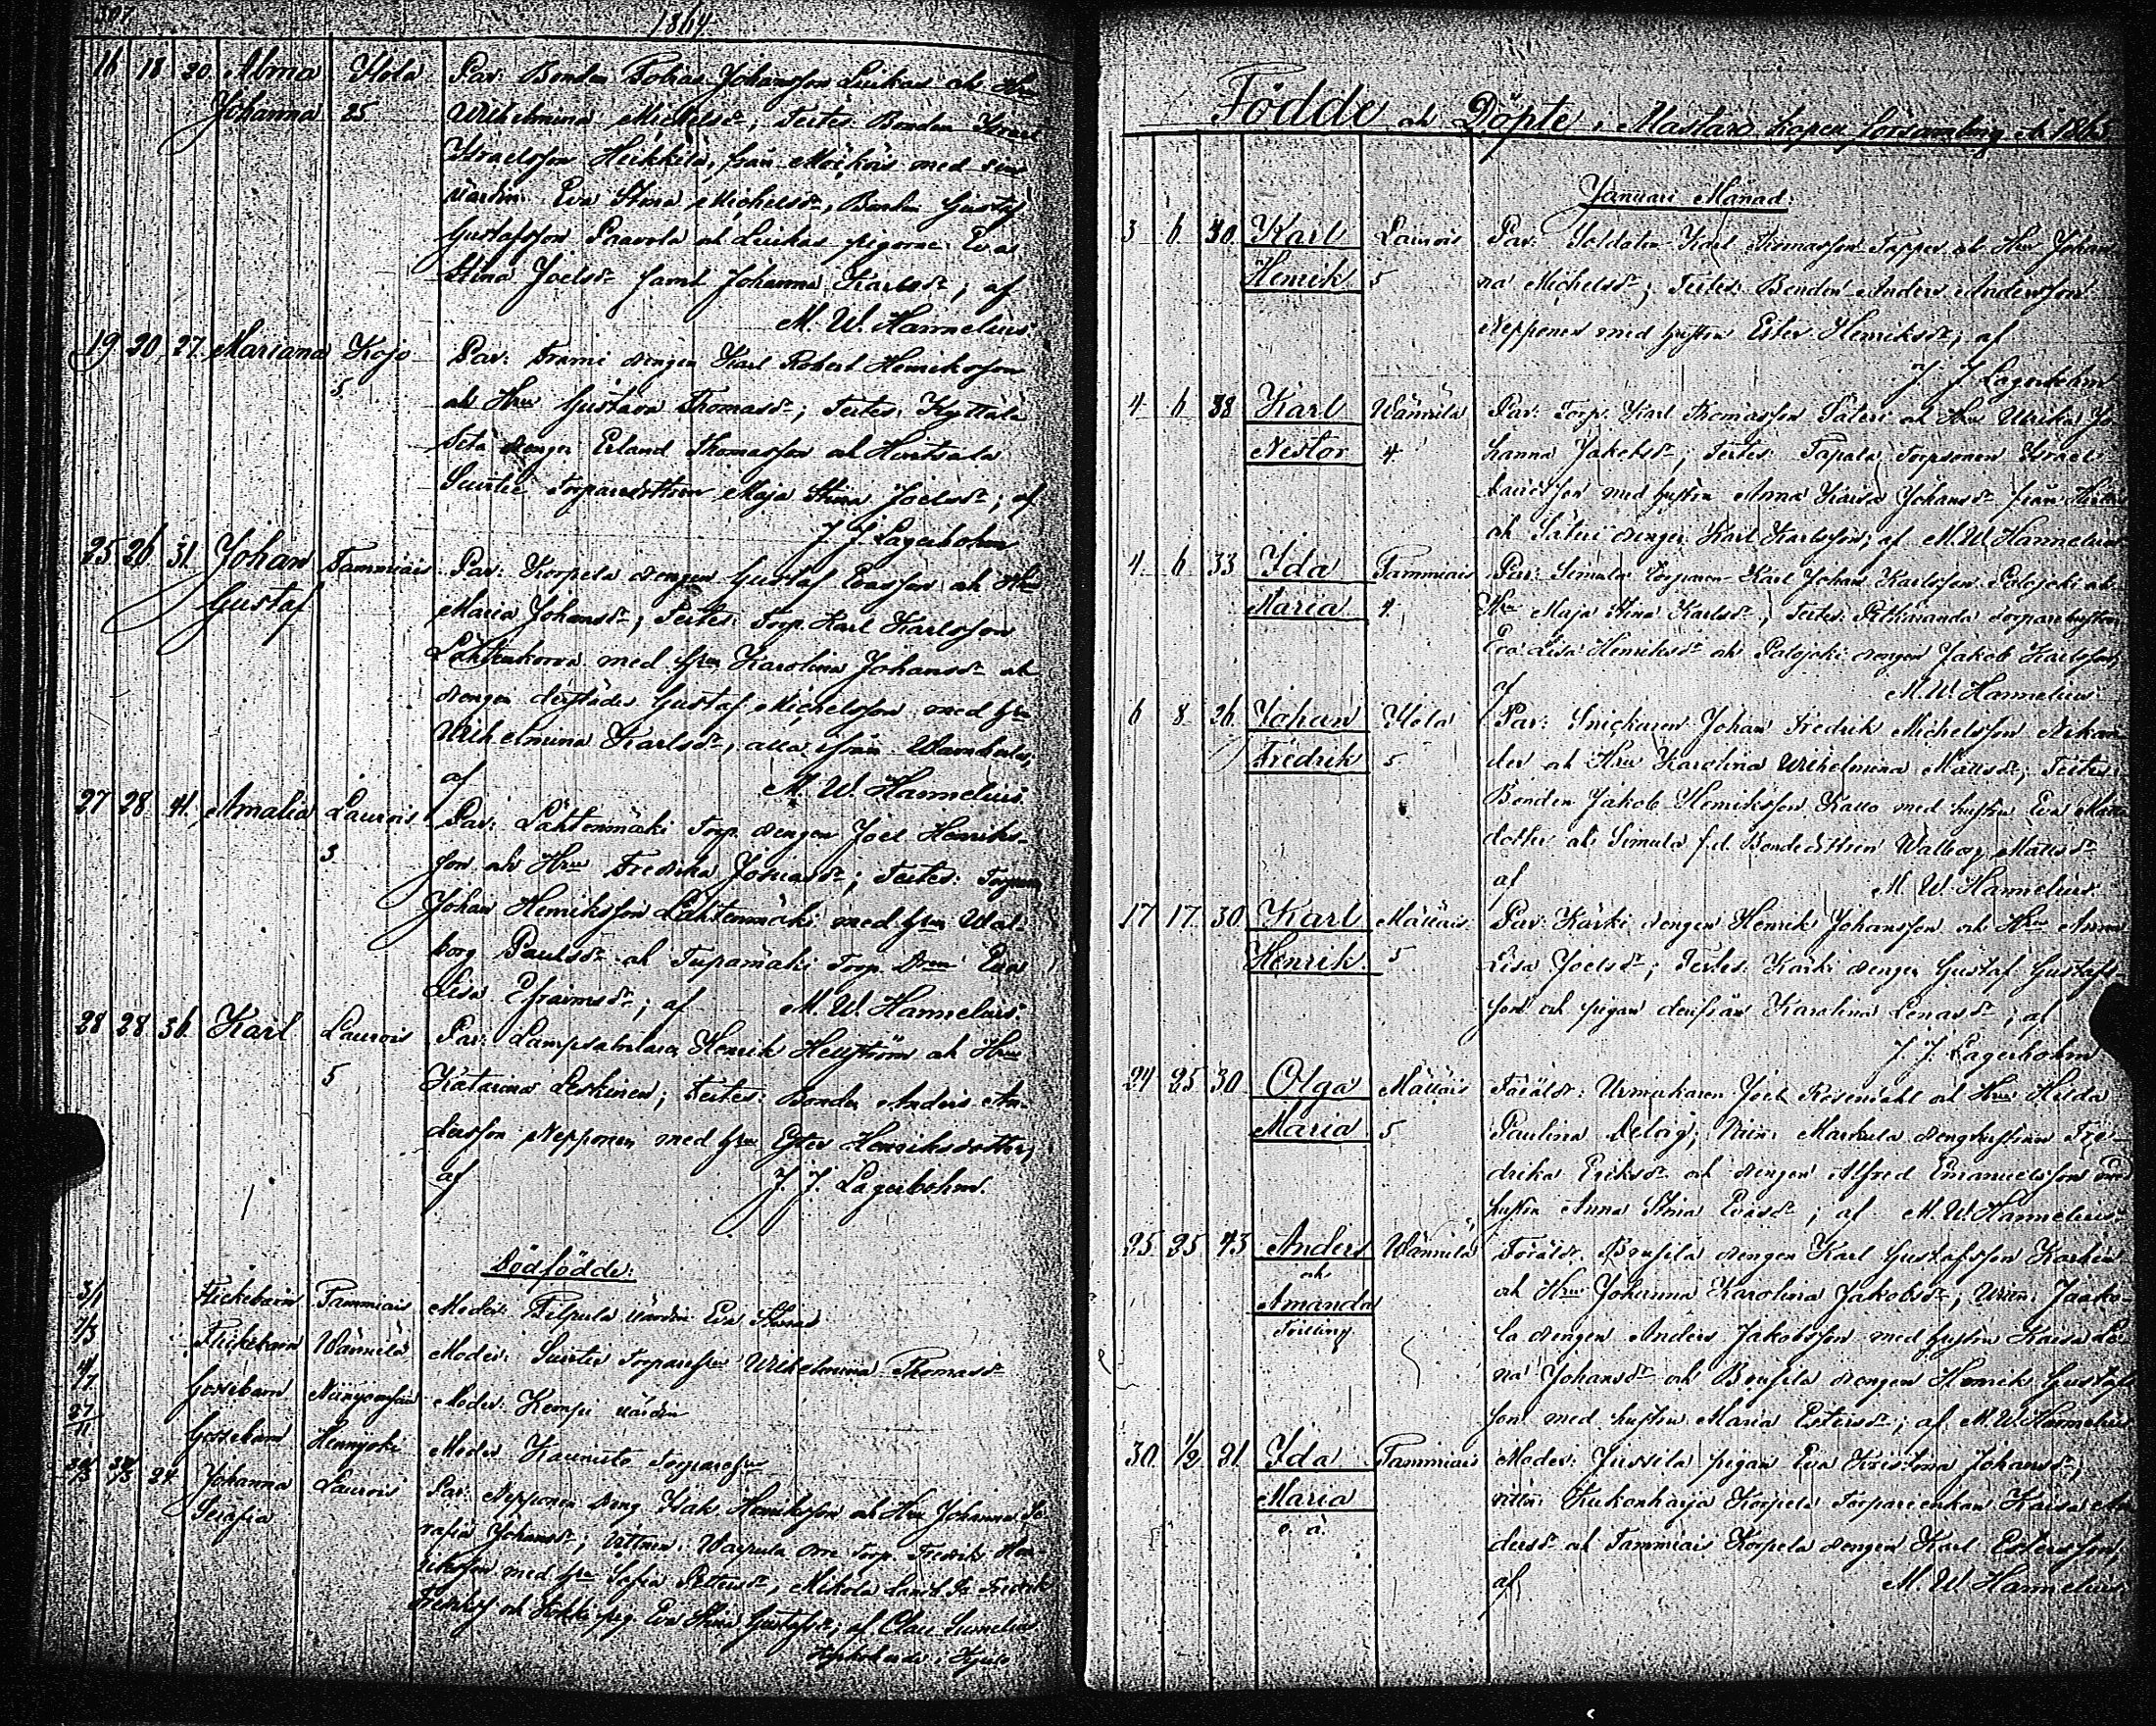 307
1864
16 18 20. Alma Ylola Par: Bonden Tobias Johansson Luikas och Hru
Johanna 25 Wilhelmina Michelsdr; Testes: Bonden Israel
Israelsson Heikkilä, från med sin
värdin Eva Stina Michelsdr, Bonden Gustaf
Gustafsson Paavola och Luikas pigorne Eva
Stina Joelsdr samt Johanna Karlsdr; af
M. W. Hannelius
19 20 27. Mariana Kojo Par: Prami drengen Karl Robert Henriksson
5. och Hru Gustava Thomasdr; Testes: Kyttälä
drengen Erland Thomasson och
torparedottern Maja Stina Joelsdr; af
J. J. Lagerbohm
25 26 31. Johan Tammiais Par: Korpela drengen Gustaf Evasson och Hru
Gustaf Maria Johansdr; Testes: Torp. Karl Karlsson
Lähteenkorva med hru Karolina Johansdr och
drengen derstädes Gustaf Michelsson med hru
Wilhelmina Karlsdr, alla ifrån Wambula,
af M. W. Hannelius.
27 28 41. Amalia Laurois Par: Lähtenmäki Torp. drengen Joel Henriks-
3 son och Hru Fredrika Joniasdr; Testes: Torparen
Johan Henriksson Lähtenmäki med hru Wal-
borg Paulsdr och Tupamäki Torp. Eva
Lisa Efraimsdr; af M. W. Hannelius.
28 28 36. Karl Laurois Par: Henrik Hellström och Hru
5 Katarina Leskinen; Testes: Bonden Anders An-
dersson Nepponen med hru Ester Henriksdotter,
af J. J. Lagerbohm.
Dödfödde:
3/1 Flickebarn Tammiais Moder: Pilpula värdin Eva Stina
1/3 Flickebarn Wännilä Moder: Torparehru Wilhelmina Thomasdr
4/7 Gossebarn Moder: Kemppi värdin
27/11 Gossebarn Hennijoki Moder: Kaunisto torparehru
24. Johanna Laurois Par: Nepponen dreng Isak Henriksson och Hru Johanna Se-
Serafia rafia Johansdr; Vittnen: Torp. Fredrik Hen-
riksson med hru Sofia Pettersdr, Mikola Fredrik
och pig. Eva Stina Gustafsdr; af
Födde och Döpte i Maskara Kapell församling år 1865
Januari Månad.
3 6 30 Karl Laurois Par: Soldaten Karl Thomasson Tapper och Hru Johan-
Henrik 5 na Michelsdr; Testes: Bonden Anders Andersson
Nepponen med hustru Ester Henriksdr; af
J. J. Lagerbohm
4 6 38 Karl Wännilä Par: Torp. Karl Thomasson Säteri och Hru Ulrika Jo-
Nestor 4. hanna Jakobsdr; Testes: Tapala Torpsonen Israel
med hustru Anna Kaisa Johansdr från
och Säteri drengen Karl Karlsson; af M. W. Hannelius
4 6 33 Ida Tammiais Par: Simula torparen Karl Johan Karlsson Palojoki och
Maria 4. Hru Maja Stina Karlsdr; Testes: torparehustrun
Eva Lisa Henriksdr och Palojoki drengen Jakob Karlsson,
af M. W. Hannelius.
6 8 26 Johan Ylola Par: Snickaren Johan Fredrik Michelsson
Fredrik 5 och Hru Karolina Wilhelmina Mattsdr; Testes:
Bonden Jakob Henriksson Katto med hustru Eva Matts-
dotter och Simula f.d. Bondedottren Walborg Mattsdr
af M. W. Hannelius
17 17 30 Karl Mättäis Par: Kärki drengen Henrik Johansson och Hru Anna
Henrik 5 Lisa Joelsdr; Testes: Kärki drengen Gustaf Gustafs-
son och pigan derifrån Karolina Lenasdr; af
J. J. Lagerbohm
24 25 30 Olga Mättäis Föräldr: Urmakaren Joel Rosendahl och Hru Hilda
Maria 5 Paulina Vittn: Markula drenghustrun Fre-
drika Eriksdr och drengen Alfred Emanuelsson med
hustru Anna Stina Evasdr; af M. W. Hannelius
25 25 43 Anders Wännilä Föräldr: drengen Karl Gustafsson
och och Hru Johanna Karolina Jakobsdr; Vittn: Jaako-
Amanda la drengen Anders Jakobsson med hustru Kaisa Le-
Tvilling na Johansdr och drengen Henrik Gustafs-
son med hustru Maria Estersdr; af M. W. Hannelius
30 1/2 21 Ida Tammiais Moder: Jussila pigan Eva Kristina Johansdr;
Maria vittn: Kukonharja Korpela Torpareenkan Kaisa An-
o. ä. dersdr och Tammiais Korpela drengen Karl Estersson,
af M. W. Hannelius